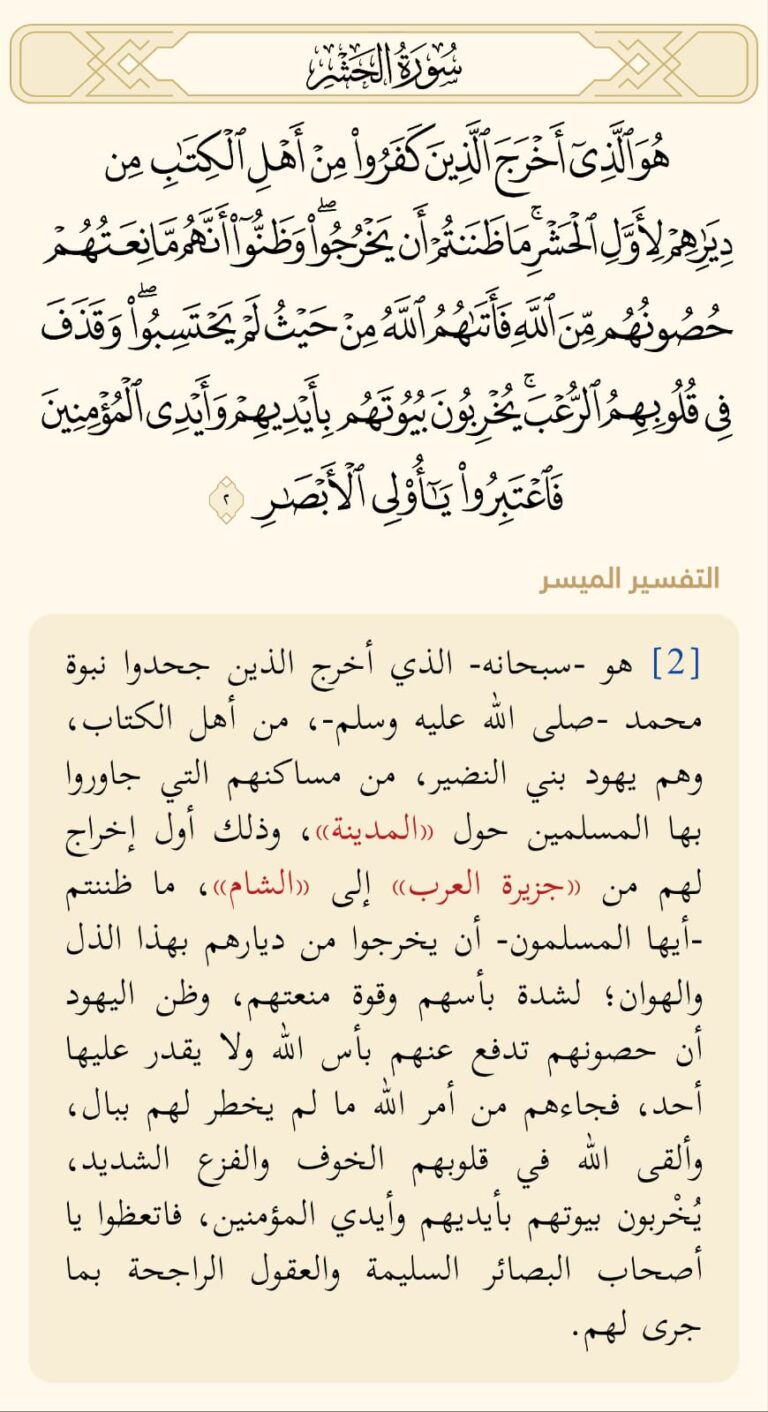 سُورَةُ الحَشْرِ
هُوَ ٱلَّذِىٓ أَخْرَجَ ٱلَّذِينَ كَفَرُوا۟ مِنْ أَهْلِ ٱلْكِتَٰبِ مِن
دِيَٰرِهِمْ لِأَوَّلِ ٱلْحَشْرِ ۚ مَا ظَنَنتُمْ أَن يَخْرُجُوا۟ ۖ وَظَنُّوٓا۟ أَنَّهُم مَّانِعَتُهُمْ
حُصُونُهُم مِّنَ ٱللَّهِ فَأَتَىٰهُمُ ٱللَّهُ مِنْ حَيْثُ لَمْ يَحْتَسِبُوا۟ ۖ وَقَذَفَ
فِى قُلُوبِهِمُ ٱلرُّعْبَ ۚ يُخْرِبُونَ بُيُوتَهُم بِأَيْدِيهِمْ وَأَيْدِى ٱلْمُؤْمِنِينَ
فَٱعْتَبِرُوا۟ يَٰٓأُو۟لِى ٱلْأَبْصَٰرِ ٢
التفسير الميسر
[2] هو -سبحانه- الذي أخرج الذين جحدوا نبوة
محمد -صلى الله عليه وسلم-، من أهل الكتاب،
وهم يهود بني النضير، من مساكنهم التي جاوروا
بها المسلمين حول «المدينة»، وذلك أول إخراج
لهم من «جزيرة العرب» إلى «الشام»، ما ظننتم
-أيها المسلمون- أن يخرجوا من ديارهم بهذا الذل
والهوان؛ لشدة بأسهم وقوة منعتهم، وظن اليهود
أن حصونهم تدفع عنهم بأس الله ولا يقدر عليها
أحد، فجاءهم من أمر الله ما لم يخطر لهم ببال،
وألقى الله في قلوبهم الخوف والفزع الشديد،
يُخْربون بيوتهم بأيديهم وأيدي المؤمنين، فاتعظوا يا
أصحاب البصائر السليمة والعقول الراجحة بما
جرى لهم.